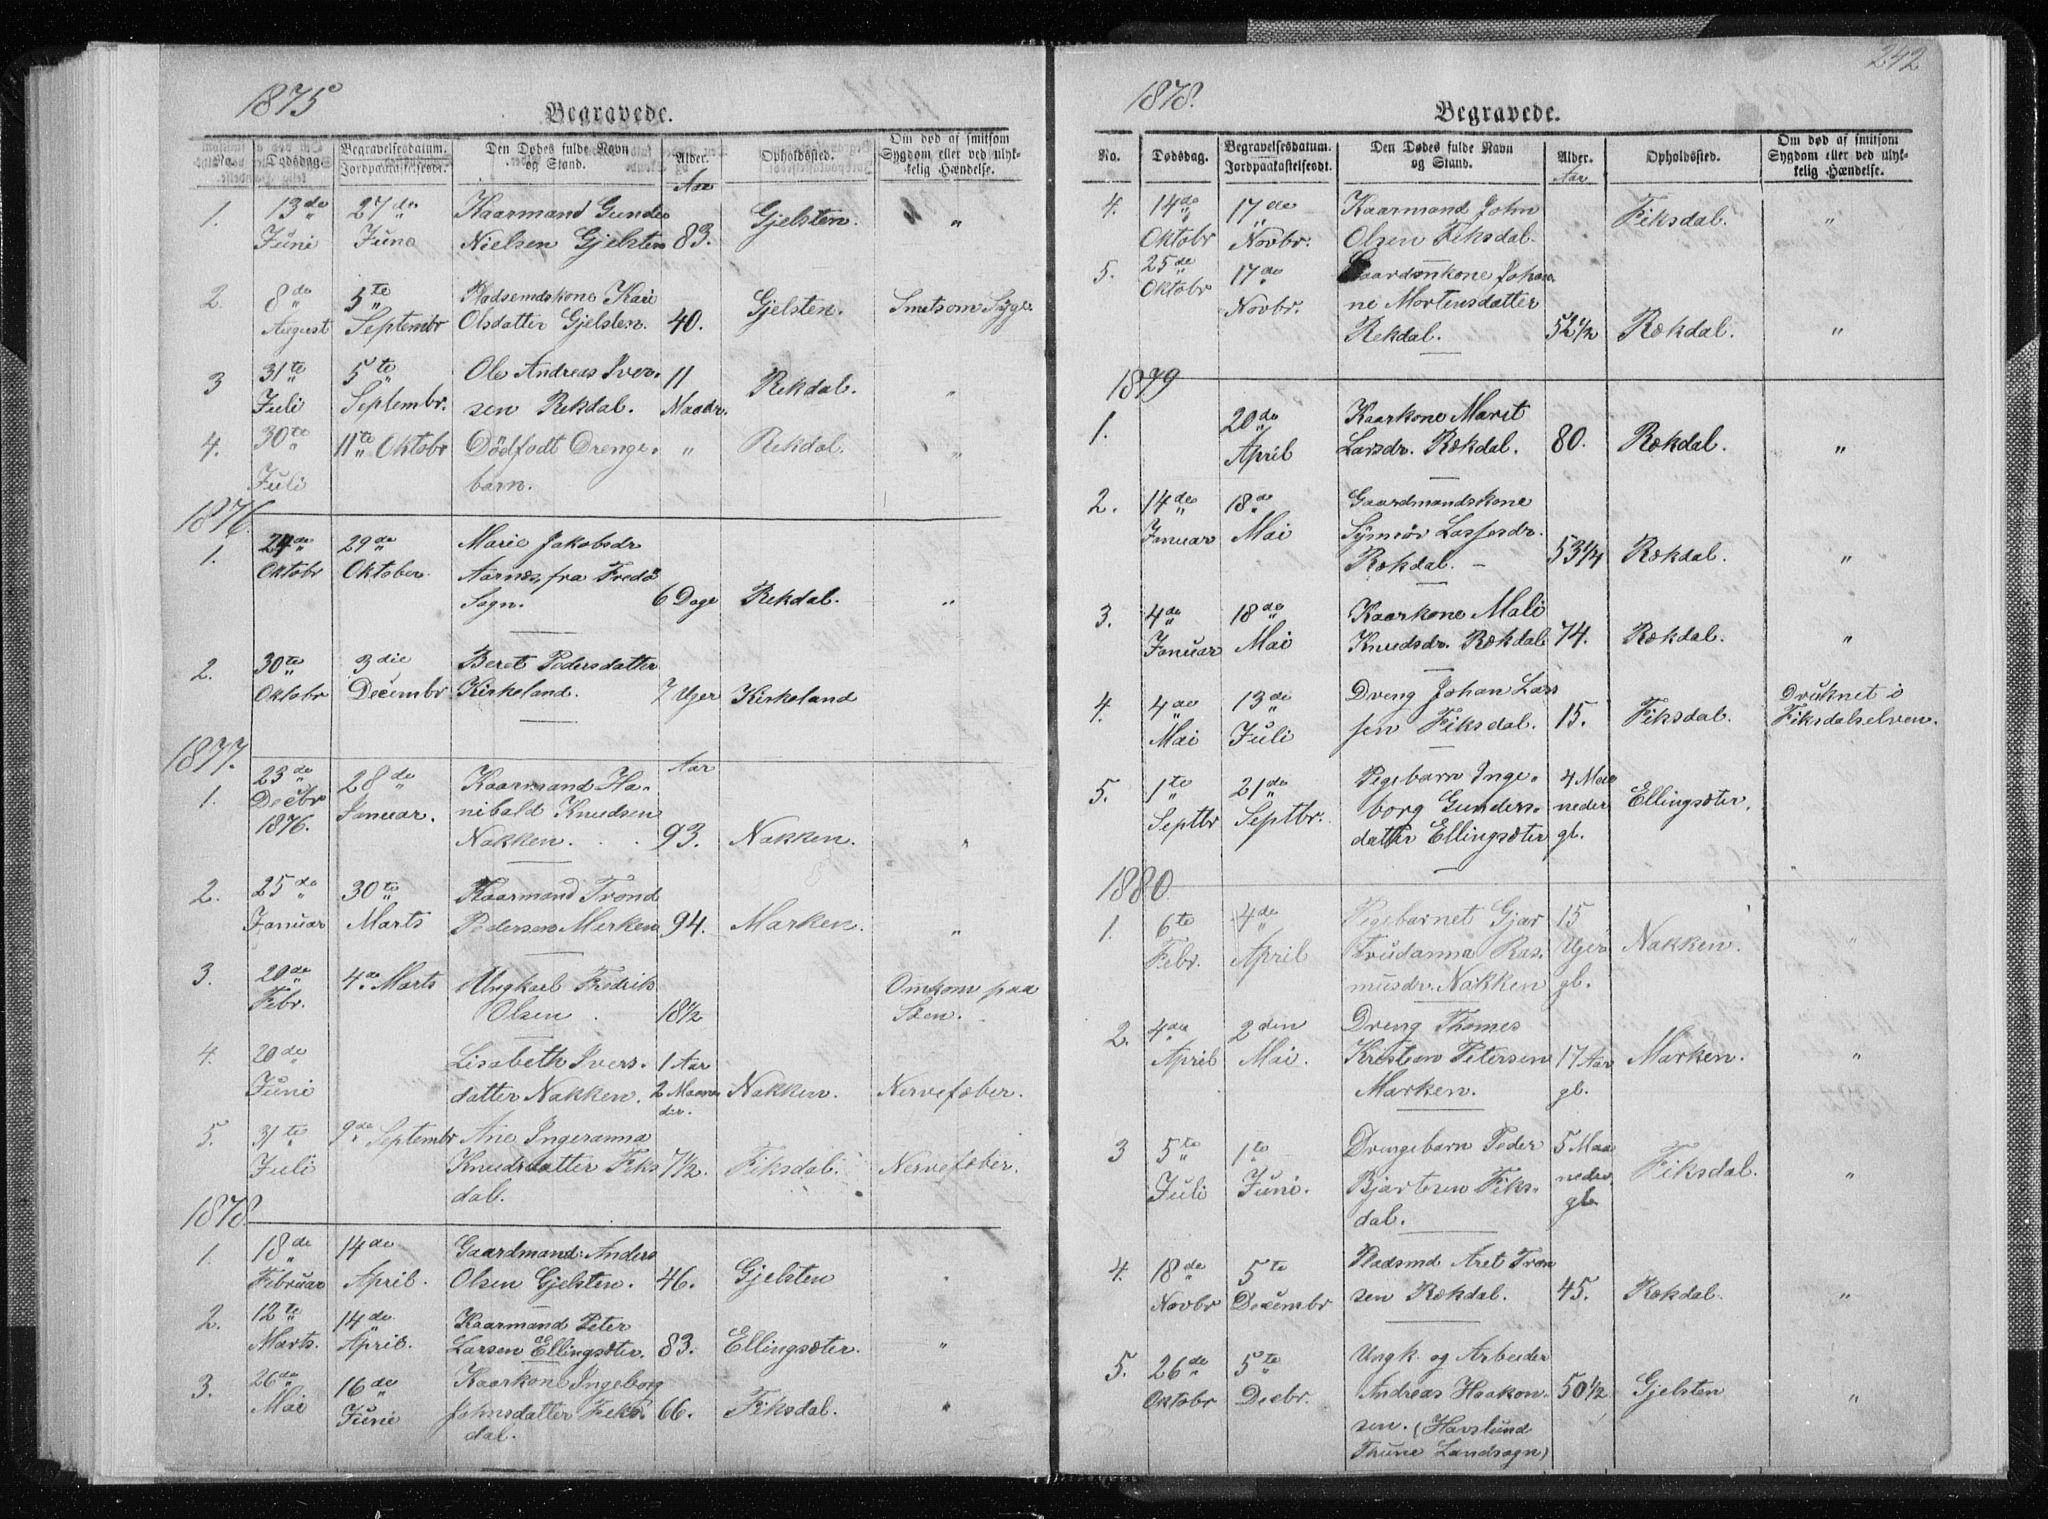 1875
Begravede.
No.
Dødsdag.
Begravelsesdatum.
Jordpaakastelsesdt.
Den Dødes fulde Navn
og Stand.
Alder.
Opholdssted.
Om død af smitsom
Sygdom eller ved ulyk-
kelig Hændelse.
Aar
1. 13de 27de Kaarmand Gunder
Juni Juno Nielsen Gjelsten 83. Gjelsten. "
2. 8de 5te Pladsemdskone Kari
August Septembr Olsdatter Gjelsten. 40. Gjelsten. Smitsom Syge.
3 31te 5te Ole Andreas Iver- 11 Rekdal. "
Juli Septembr. sen Rekdal. Maadr.
4. 30te 11te Oktobr Dödfödt Drenge- " Rekdal. "
Juli barn.
1876.
1. 24de 29de Marie Jakobsdr
Oktobr Oktober. Aarnes, fra Fredö
Sogn. 6 Dage Rekdal. "
2. 30te 3die Beret Pedersdatter
Oktobr Decembr Kirkeland. 7 Uger Kirkeland
1877.
Aar
1. 23de 28de Kaarmand Ha-
Decbr Januar. nibald Knudsen
1876. Nakken. 93. Nakken. "
2. 25de 30te Kaarmand Trond
Januar Marts Pedersen Marken 94. Marken. "
3. 20de 4de Marts Ungkarl Fredrik Omkom paa
Febr. Olsen 18½ Söen.
4. 20de Lisabeth Ivers- 1 Aar
Juni datter Nakken. 2 Maane Nakken. Nervefeber.
der.
5. 31te 9de Septembr Ane Ingeranna
Juli Knudsdatter Fiks 7½. Fiksdal. Nervefeber.
dal.
1878.
1. 18de 14de Gaardmand Anders
Februar April. Olsen Gjelsten. 46. Gjelsten "
2. 12te 14de Kaarmand Peter
Marts. April. Larsen Ellingsæter. 83. Ellingsæter. "
3. 26de 16de Kaarkone Ingeborg
Mai Juni Johnsdatter Fiks 66. Fiksdal. "
dal.
242
1878.
Begravede.
No.
Dødsdag.
Begravelsesdatum.
Jordpaakastelsesdt.
Den Dødes fulde Navn
og Stand.
Alder.
Opholdssted.
Om død af smitsom
Sygdom eller ved ulyk-
kelig Hændelse.
Aar
4. 14de 17de Kaarmand John Fiksdal. "
Oktobr Novbr. Olsen Fiksdal.
5. 25de 17de Gaardmkone Johan
Oktobr Novbr. ne Mortensdatter
Rekdal. 52½ Rækdal. "
1879
1. 20de Kaarkone Marit
April Larsdr. Rækdal. 80. Rækdal. "
2. 14de 18de Gaardmandskone
Januar Mai Synnöv Lassesdr.
Rækdal. 53¼ Rækdal. "
3. 4de 18de Kaarkone Mali
Januar Mai Knudsdr. Rækdal 74. Rækdal. "
4. 4de 13de Dreng Johan Lars Druknet i
Mai Juli sen Fiksdal. 15. Fiksdal. Fiksdalselven.
5. 1te 21de Pigebarn Inge- 4 Maa
Septbr Septbr. borg Gunders- neder Ellingsæter. "
datter Ellingsæter gl.
1880
1. 6te 4de Pigebarnet Gjær 15
Febr. April Trudanna Ras- Uger Nakken. "
musdr. Nakken gl.
2. 4de 2den Dreng Thomes
April Mai. Kristian Petersen 17 Aar Marken. "
Marken. gl.
3 5te 1te Drengebarn Peder 5 Maa
Juli Juni. Bjartesen Fiks- neder Fiksdal. "
dal. gl.
4. 18de 5te Pladsmd Aret Tron
Novbr Decembr sen Rækdal. 45. Rækdal. "
5. 26de 5te Ungk. og Arbeider
Oktobr Decbr. Andreas Haakon- 50½ Gjelsten "
sen. (Havslund
Thune Landsogn)